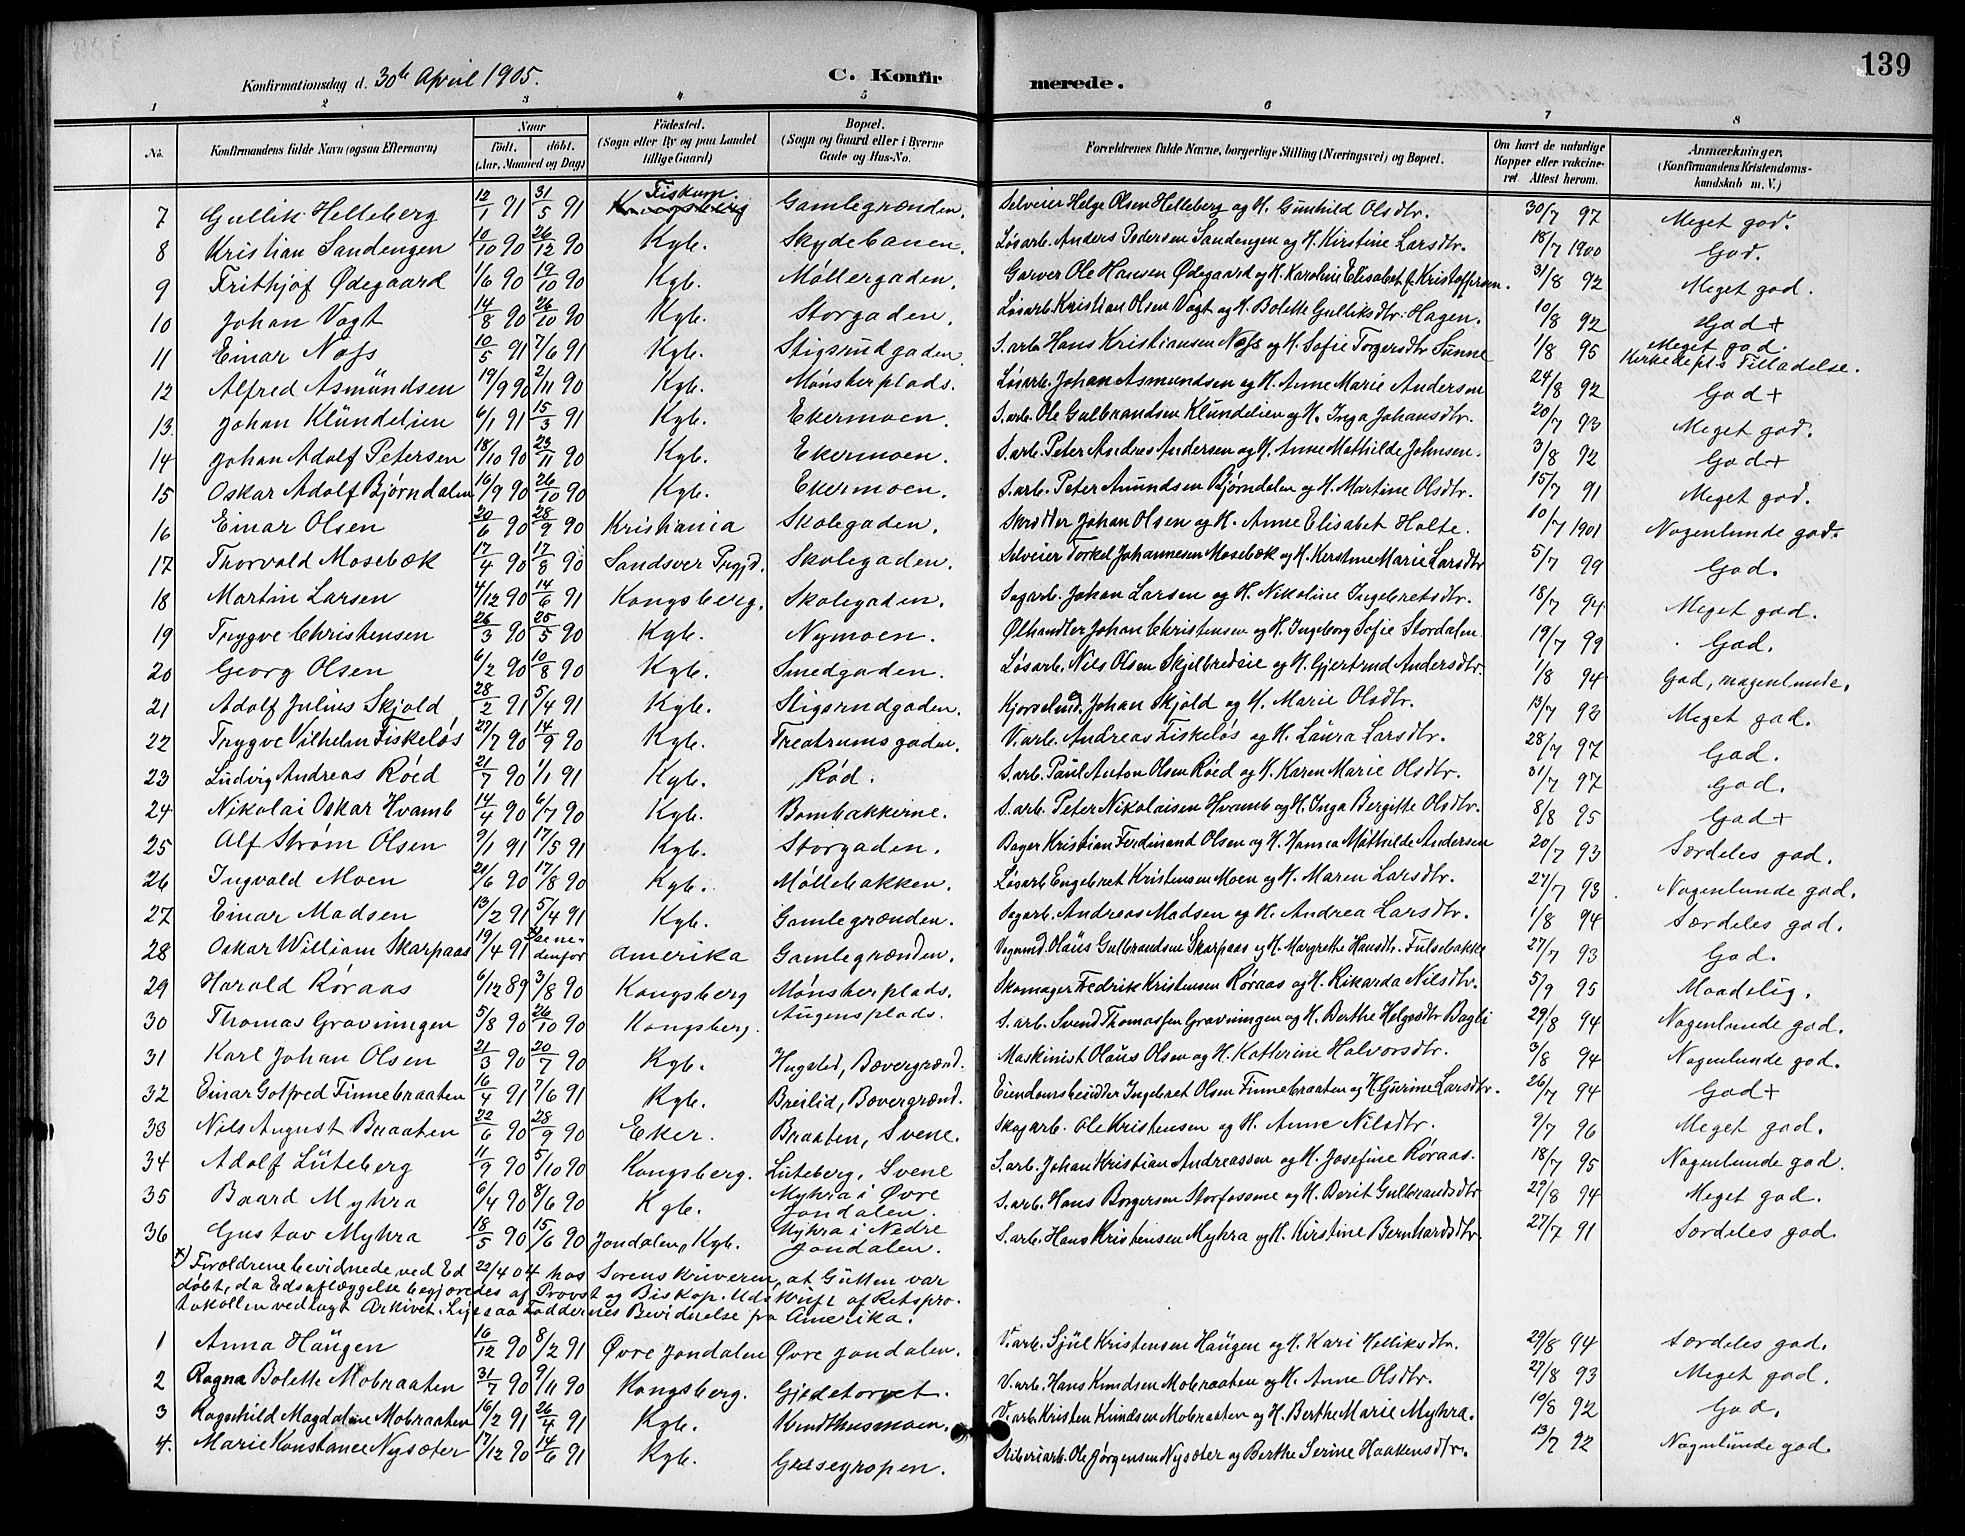 139
Konfirmationsdag d. 30te April 1905. C. Konfirmerede.
1 2 3 4 5 6 7 8
No. Konfirmandens fulde Navn (ogsaa Efternavn) Naar født. døbt. (Aar, Maaned og Dag) Fødested. (Sogn eller By og paa Landet tillige Gaard) Bopæl. (Sogn og Gaard eller i Byerne Gade og Hus-No. Forældrenes fulde Navne, borgerlige Stilling (Næringsvei) og Bopæl. Om havt de naturlige Kopper eller vakcineret Attest herom. Anmærkninger, (Konfirmandens Kristendomskundskab m. V.)
7 Gullik Helleberg 12/1 91 31/5 91 Fiskum. Gamlegrænden. Selveier Helge Olsen Helleberg og H. Gunhild Olsdtr. 30/7 97 Meget god.
8 Kristian Sandengen 10/10 90 26/12 90 Kgb. Skydebanen. Løsarb. Anders Pedersen Sandengen og H. Kirstine Larsdtr. 18/7 1900 God.
9 Frithjof Ødegaard 1/6 90 19/10 90 Kgb. Møllergaden. Garver Ole Hansen Ødegaard og H. Karoline Elisabet f. Kristoffersen. 31/8 92 Meget god.
10 Johan Vogt 14/8 90 26/10 90 Kgb. Storgaden. Løsarb. Kristian Olsen Vogt og H. Bolette Gulliksdtr. Hagen. 10/8 92 God +
11 Einar Næfs 10/5 91 7/6 91 Kgb. Stigsrudgaden. S. arb. Hans Kristiansen Næfs og H. Sofie Torgersdtr Sünne 1/8 95 Meget god. Kirkedept's Tilladelse.
12 Alfred Asmündsen 19/9 90 2/11 90 Kgb. Mønsterplads. Løsarb. Johan Asmundsen og H. Anne Marie Andersen 24/8 92 God +
13. Johan Klündelien 6/1 91 15/3 91 Kgb. Ekermoen. S. arb. Ole Gulbrandsen Klundelien og H. Inga Johansdtr. 20/7 93 Meget god.
14 Johan Adolf Petersen 18/10 90 23/11 90 Kgb. Ekermoen. S. arb. Peter Andreas Andersen og H. Anne Mathilde Johnsen. 3/8 92 God +
15 Oskar Adolf Bjørndalen 16/9 90 26/10 90 Kgb. Ekermoen. S. arb. Peter Amundsen Bjørndalen og H. Martine Olsdtr. 15/7 91 Meget god.
16 Einar Olsen 20/6 90 28/9 90 Kristiania Skolegaden. Skrædder Johan Olsen og H. Anne Elisabet Holte. 10/7 1901 Nogenlunde god.
17 Thorvald Mosebæk 17/4 90 17/8 90 Sandsver Prgjd. Skolegaden. Selveier Torkel Johannesen Mosebæk og H. Kerstine Marie Larsdtr 5/7 99 God.
18 Martin Larsen 4/12 90 14/6 91 Kongsberg. Skolegaden. Sagarb. Johan Larsen og H. Nikoline Ingebretsdtr. 18/7 94 Meget god.
19 Trygve Christensen 26/3 90 25/5 90 Kgb. Nymoen. Ølhandler Johan Christensen og H. Ingeborg Sofie Stordalen. 19/7 99 God.
20 Georg Olsen 6/2 90 10/8 90 Kgb. Smedgaden. Løsarb. Nils Olsen Skjelbredeie og H. Gjertrud Andersdtr. 1/8 94 God, nogenlunde.
21 Adolf Julius Skjold 28/2 91 5/4 91 Kgb. Stigsrudgaden. Kjørselmd. Johan Skjold og H. Marie Olsdtr. 13/7 92 Meget god.
22 Trygve Vilhelm Fiskeløs 27/7 90 14/9 90 Kgb. Treatrumsgaden. V. arb. Andreas Fiskeløs og H. Laura Larsdtr. 28/7 97 God.
23 Ludvig Andreas Røed 21/7 90 1/1 91 Kgb. Rød. S. arb. Paul Anton Olsen Røed og H. Karen Marie Olsdtr. 31/7 97 God.
24 Nikolai Oskar Hvamb 14/4 90 6/7 90 Kgb. Bombakkerne. S. arb. Peter Nikolaisen Hvamb og H. Inga Bergitte Olsdtr. 8/8 95 God +
25 Alf Strøm Olsen 9/1 91 17/5 91 Kgb. Storgaden. Bager Kristian Ferdinand Olsen og H. Hanna Mathilde Andersen 20/7 93 Særdeles god.
26 Ingvald Moen 21/6 90 17/8 90 Kgb. Møllebakken. Løsarb. Engebret Kristensen Moen og H. Maren Larsdtr. 27/7 93 Nogenlunde god.
27 Einar Madsen 13/2 91 5/4 91 Kgb. Gamlegrænden. Sagarb. Andreas Madsen og H. Andrea Larsdtr. 1/8 94 Særdeles god.
28 Oskar William Skarpaas 19/4 91 x) se nedenfor Amerika Gamlegrænden. Vognmd. Olaüs Gulbrandsen Skarpaas og H. Margrethe Hansdtr. Fulsebakke 27/7 93 God.
29 Harald Røraas 6/12 89 3/8 90 Kongsberg Mønsterplads. Skomager Fredrik Kristensen Røraas og H. Rikarda Nilsdtr. 5/9 95 Maadelig.
30 Thomas Gravningen 5/8 90 26/10 90 Kongsberg. Augensplads. S. arb. Svend Thomassen Gravningen og H. Berthe Helgesdtr Bagli 29/8 94 Nogenlunde god.
31 Karl Johan Olsen 21/3 90 20/7 90 Kgb. Hugsted, Bævergrænd. Maskinist Olaüs Olsen og H. Katherine Halvorsdtr. 3/8 94 Nogenlunde god.
32 Einar Gotfred Finnebraaten 16/4 91 7/6 91 Kgb. Breilid, Bævergrænd. Eiendomsbesidder Ingebret Olsen Finnebraaten og H. Gurine Larsdtr. 26/7 94 God +
33 Nils August Braaten 22/6 90 28/9 90 Eker. Braaten, Svene. Skogarb. Ole Kristensen og H. Anne Nilsdtr. 9/7 96 Meget god.
34 Adolf Lüteberg 11/9 90 5/10 90 Kongsberg. Luteberg, Svene S. arb. Johan Kristian Andreassen og H. Josefine Røraas. 18/7 95 Nogenlunde god.
35 Baard Myhra 6/4 90 8/6 90 Kgb. Myhra i Øvre Jondalen. S. arb. Hans Borgersen Storfossene og H. Berit Gulbrandsdtr 29/8 94 Meget god.
36 Gustav Myhra 18/5 90 15/6 90 Jondalen, Kgb. Myhra i Nedre Jondalen. S. arb. Hans Kristensen Myhra og H. Kirstine Bernhardsdtr. 27/7 91 Særdeles god.
x) Forældrene bevidnede ved Ed 22/4 04 hos Sorenskriveren, at Gutten var
døbt, da Edsaflæggelse begjæredes af Provst og Biskop. Udskrift af Retspro-
tokollen vedlagt Arkivet. Ligesaa Faddernes Bevidnelse fra Amerika.
1 Anna Haügen 16/12 90 8/2 91 Øvre Jondalen Øvre Jondalen. V. arb. Sjül Kristensen Haügen og H. Kari Helliksdtr. 29/8 94 Særdeles god.
2 Ragna Bolette Mobraaten 31/7 90 9/11 90 Kongsberg. Gjedetorvet. V. arb. Hans Knudsen Mobraaten og H. Anne Olsdtr. 27/8 93 Meget god.
3 Ragnhild Magdalene Mobraaten 16/2 91 26/4 91 Kgb. Kvidthusmoen. V. arb. Kristen Knudsen Mobraaten og H. Berthe Marie Myhra. 19/8 92 God.
4. Marie Konstance Nysæter 17/12 90 14/6 91 Kgb. Gaasegropen. Sliberiarb. Ole Jørgensen Nysæter og Berthe Serine Haakensdtr. 13/7 92 Nogenlunde god.